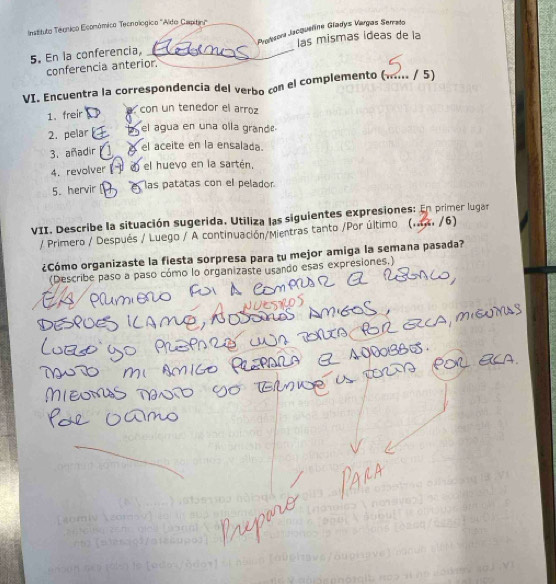 Instituto Técnico Económico Tecnologico "Aldo Capitini"
Profesora Jacqueline Gladys Vargas Serrato
5. En la conferencia, las mismas ideas de la
conferencia anterior.
VI. Encuentra la correspondencia del verbo con el complemento (...5... / 5)
1. freir D con un tenedor el arroz
2. pelar E el agua en una olla grande.
3. añadir el aceite en la ensalada.
4. revolver A el huevo en la sartén.
5. hervir B las patatas con el pelador.
VII. Describe la situación sugerida. Utiliza las siguientes expresiones: En primer lugar
/ Primero / Después / Luego / A continuación/Mientras tanto /Por último (...... /6)
¿Cómo organizaste la fiesta sorpresa para tu mejor amiga la semana pasada?
(Describe paso a paso cómo lo organizaste usando esas expresiones.)
PRIMERO FUI A COMPRAR EL REGALO,
NUESTROS
DESPUES LLAMÉ, NOSOTROS AMIGOS,
LUEGO YO PREPARE UNA TORTA POR ELLA, MIENTRAS
TANTO MI AMIGO PREPARA EL ADDOBBOS.
MIENTRAS TANTO YO TERMINE LA TORTA POR ELLA.
POR
Preparó PARA